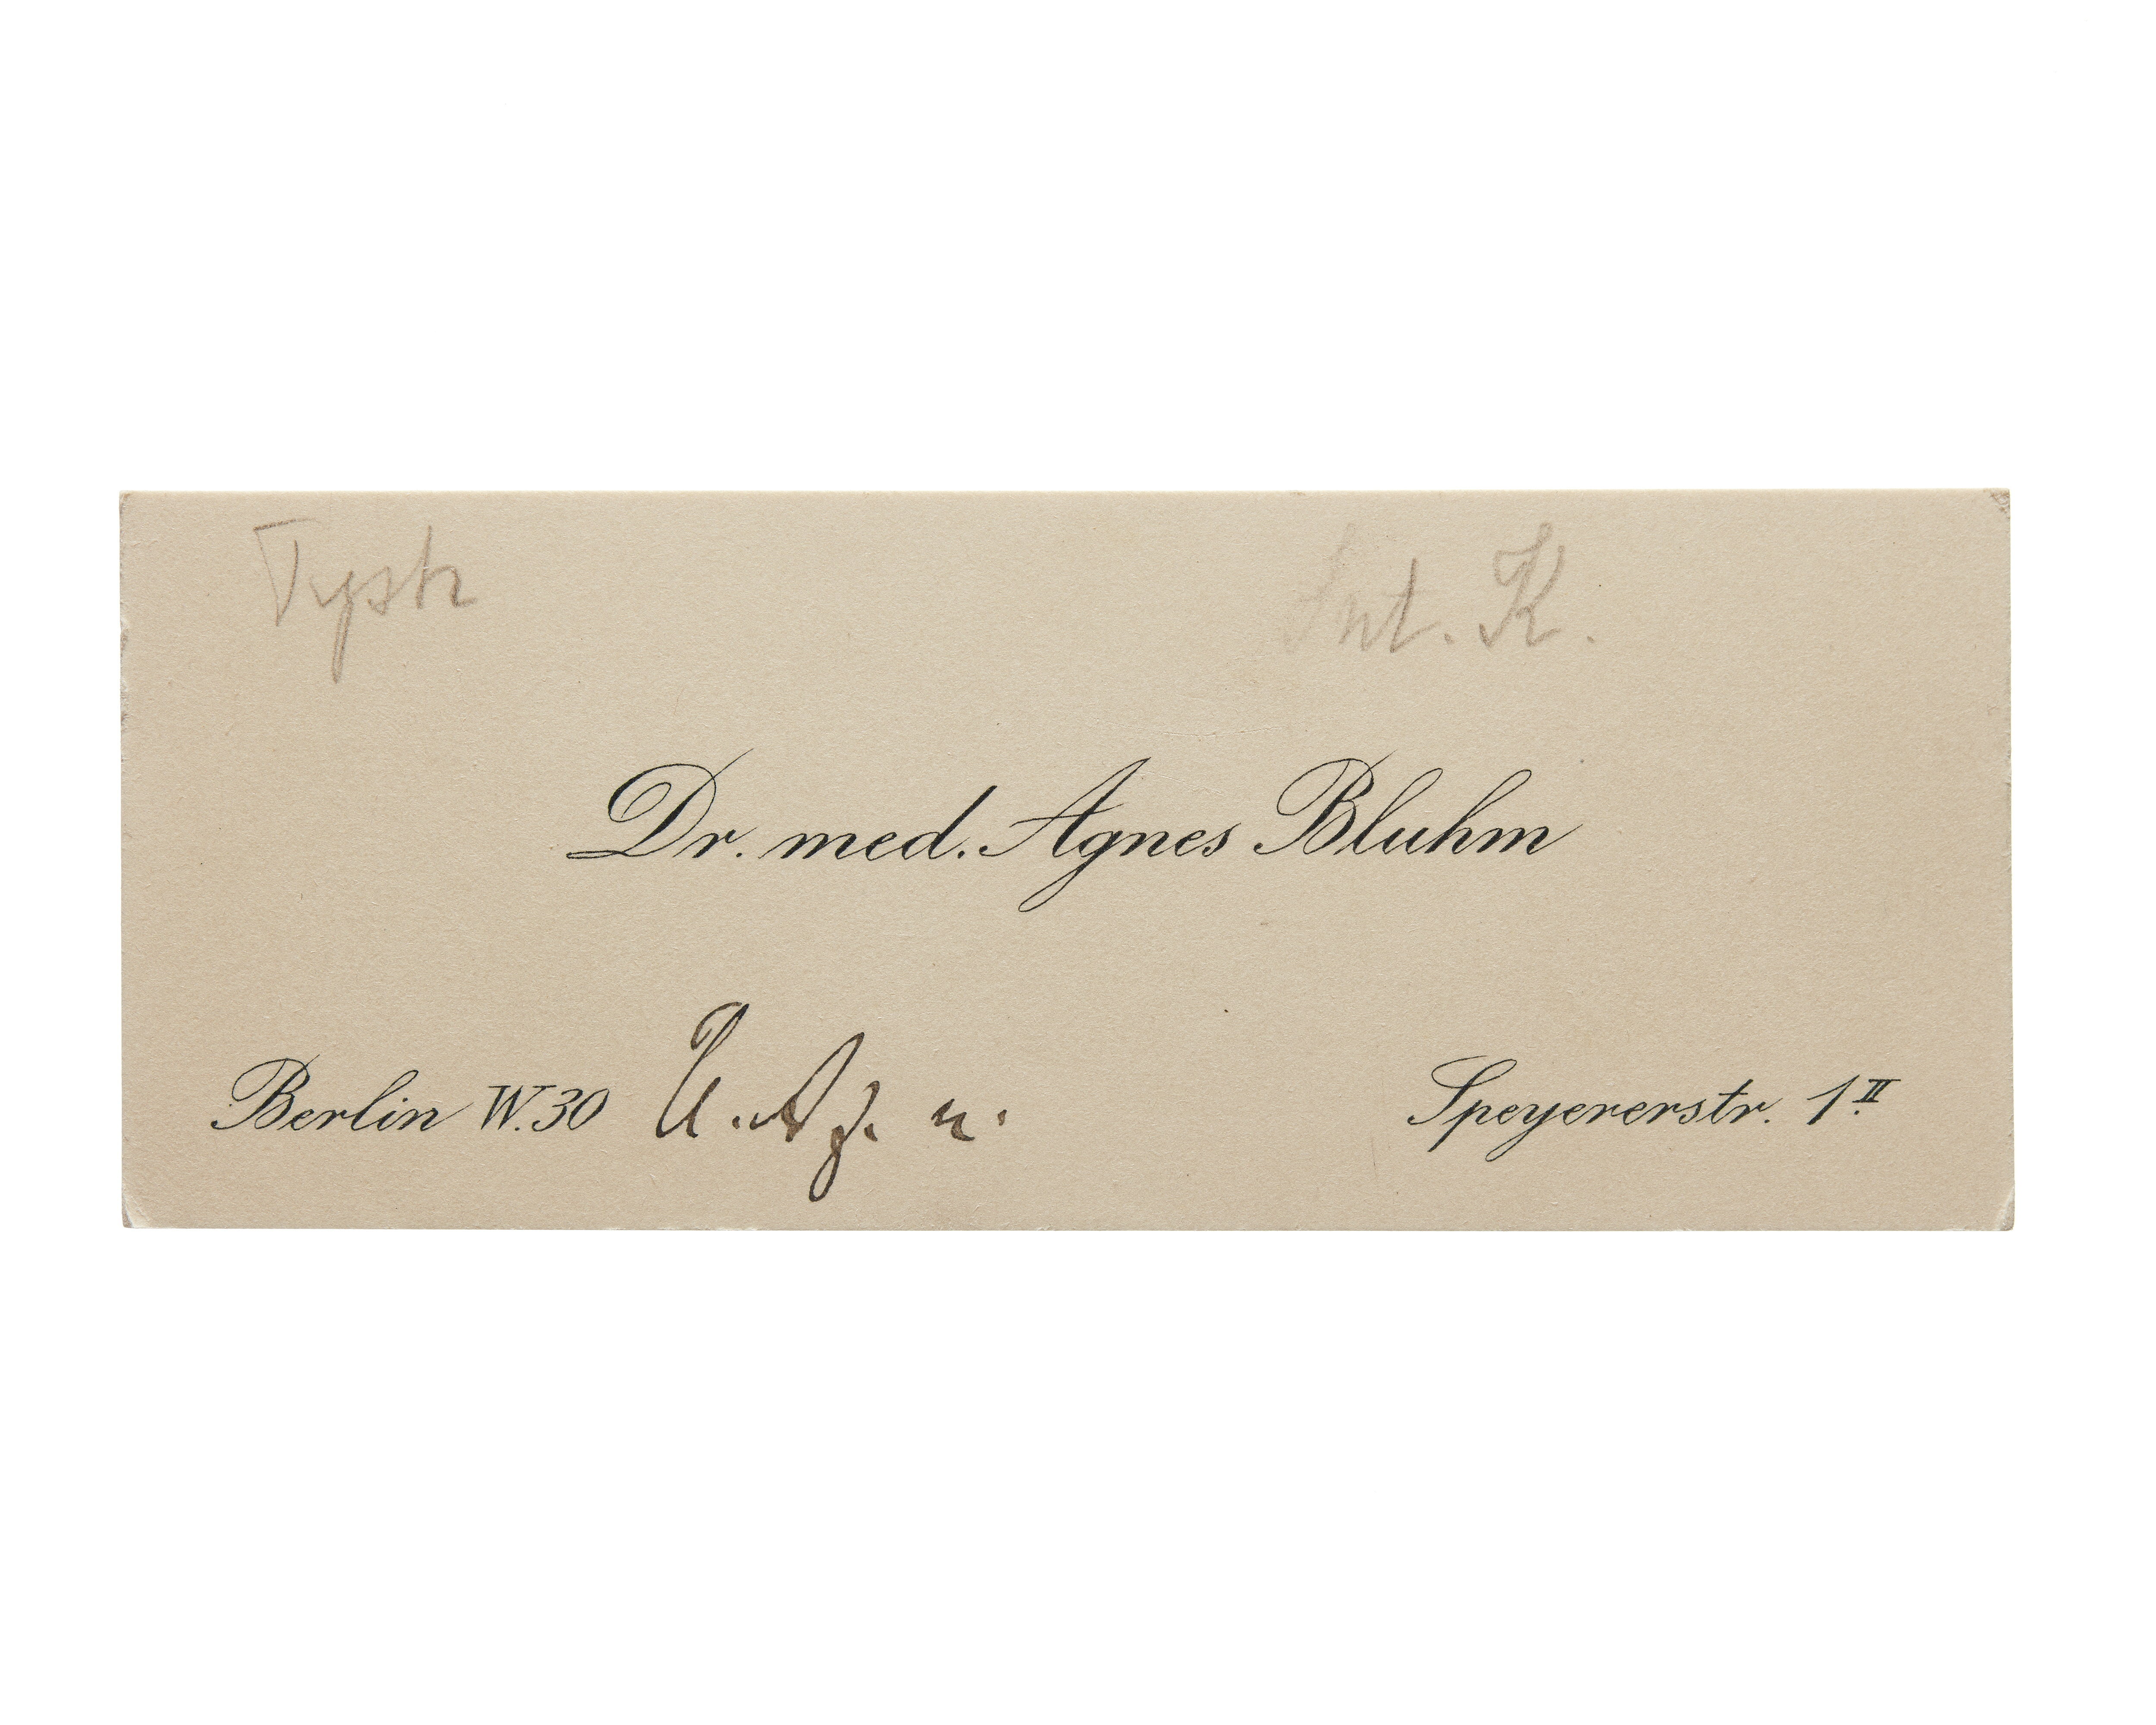 Tyskl Int. K.
Dr. med. Agnes Bluhm
Berlin W.30 Speyererstr. 1.II